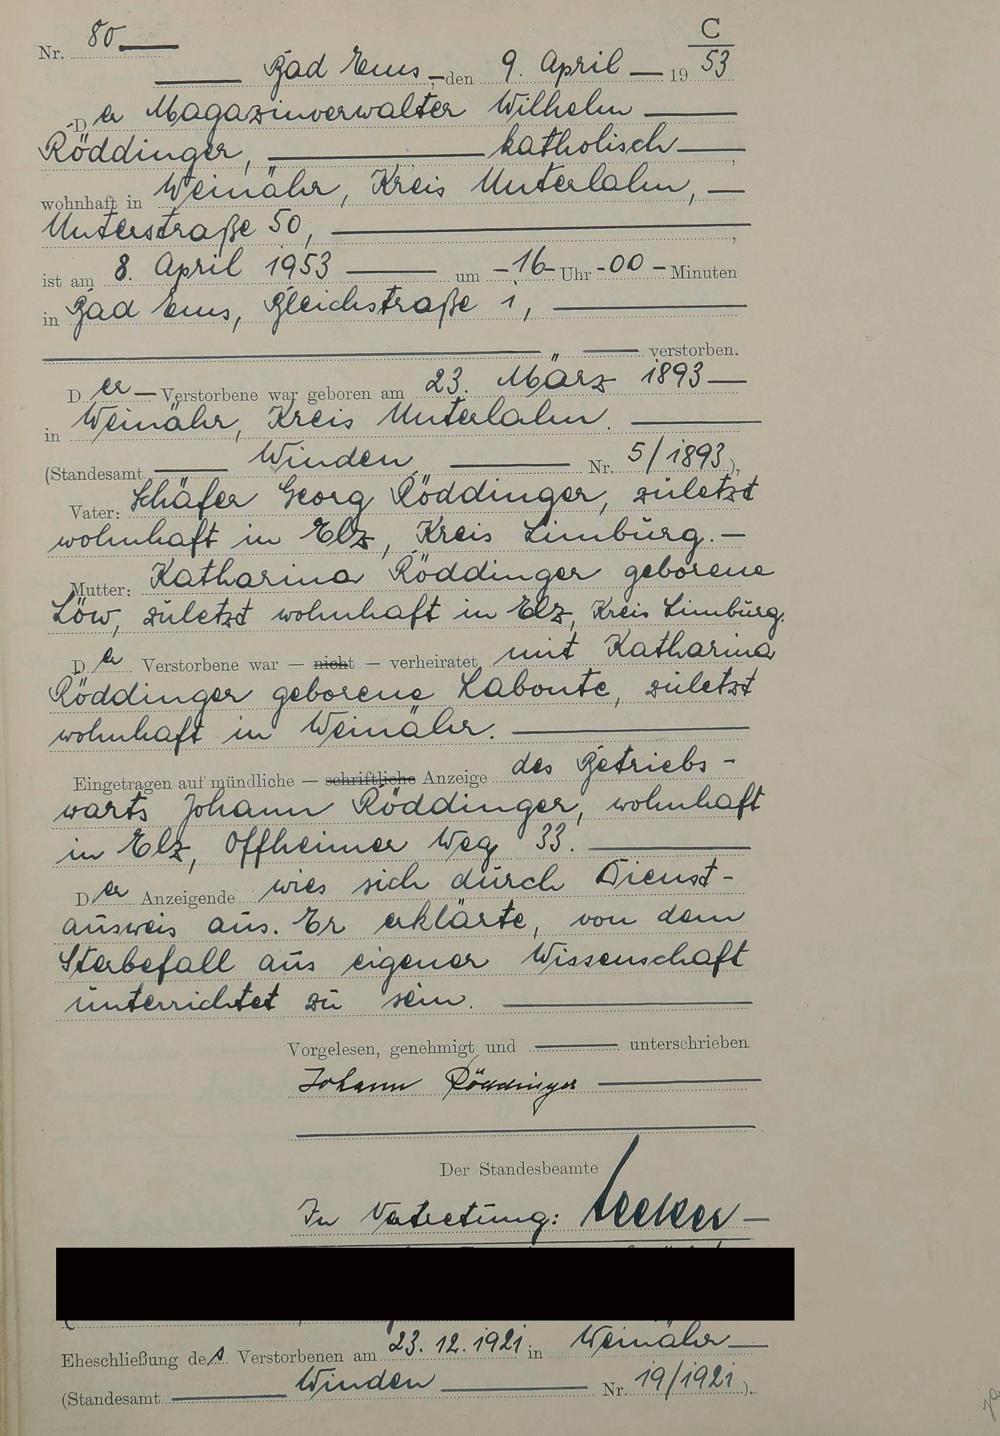 C
Nr. 80
Bad Ems, den 9. April 19 53
Der Magazinverwalter Wilhelm
Röddinger, katholisch,
wohnhaft in Weinähr, Kreis Unterlahn,
Unterstraße 50,
ist am 8. April 1953 um -16- Uhr -00- Minuten
in Bad Ems, Bleichstraße 1,
verstorben.
Der Verstorbene war geboren am 23. März 1893
in Weinähr, Kreis Unterlahn.
(Standesamt Winden Nr. 5/1893),
Vater: Schäfer Georg Röddinger, zuletzt
wohnhaft in Elz, Kreis Limburg.
Mutter: Katharina Röddinger geborene
Löw, zuletzt wohnhaft in Elz, Kreis Limburg.
Der Verstorbene war — nicht — verheiratet mit Katharina
Röddinger geborene Labonte, zuletzt
wohnhaft in Weinähr.
Eingetragen auf mündliche — schriftliche Anzeige des Betriebs-
warts Johann Röddinger, wohnhaft
in Elz, Offheimer Weg 33.
Der Anzeigende wies sich durch Dienst-
ausweis aus. Er erklärte, von dem
Sterbefall aus eigener Wissenschaft
unterrichtet zu sein.
Vorgelesen, genehmigt und unterschrieben
Johann Röddinger
Der Standesbeamte
In Vertretung:
Eheschließung des Verstorbenen am 23.12.1921 in Weinähr
(Standesamt Winden Nr. 19/1921).